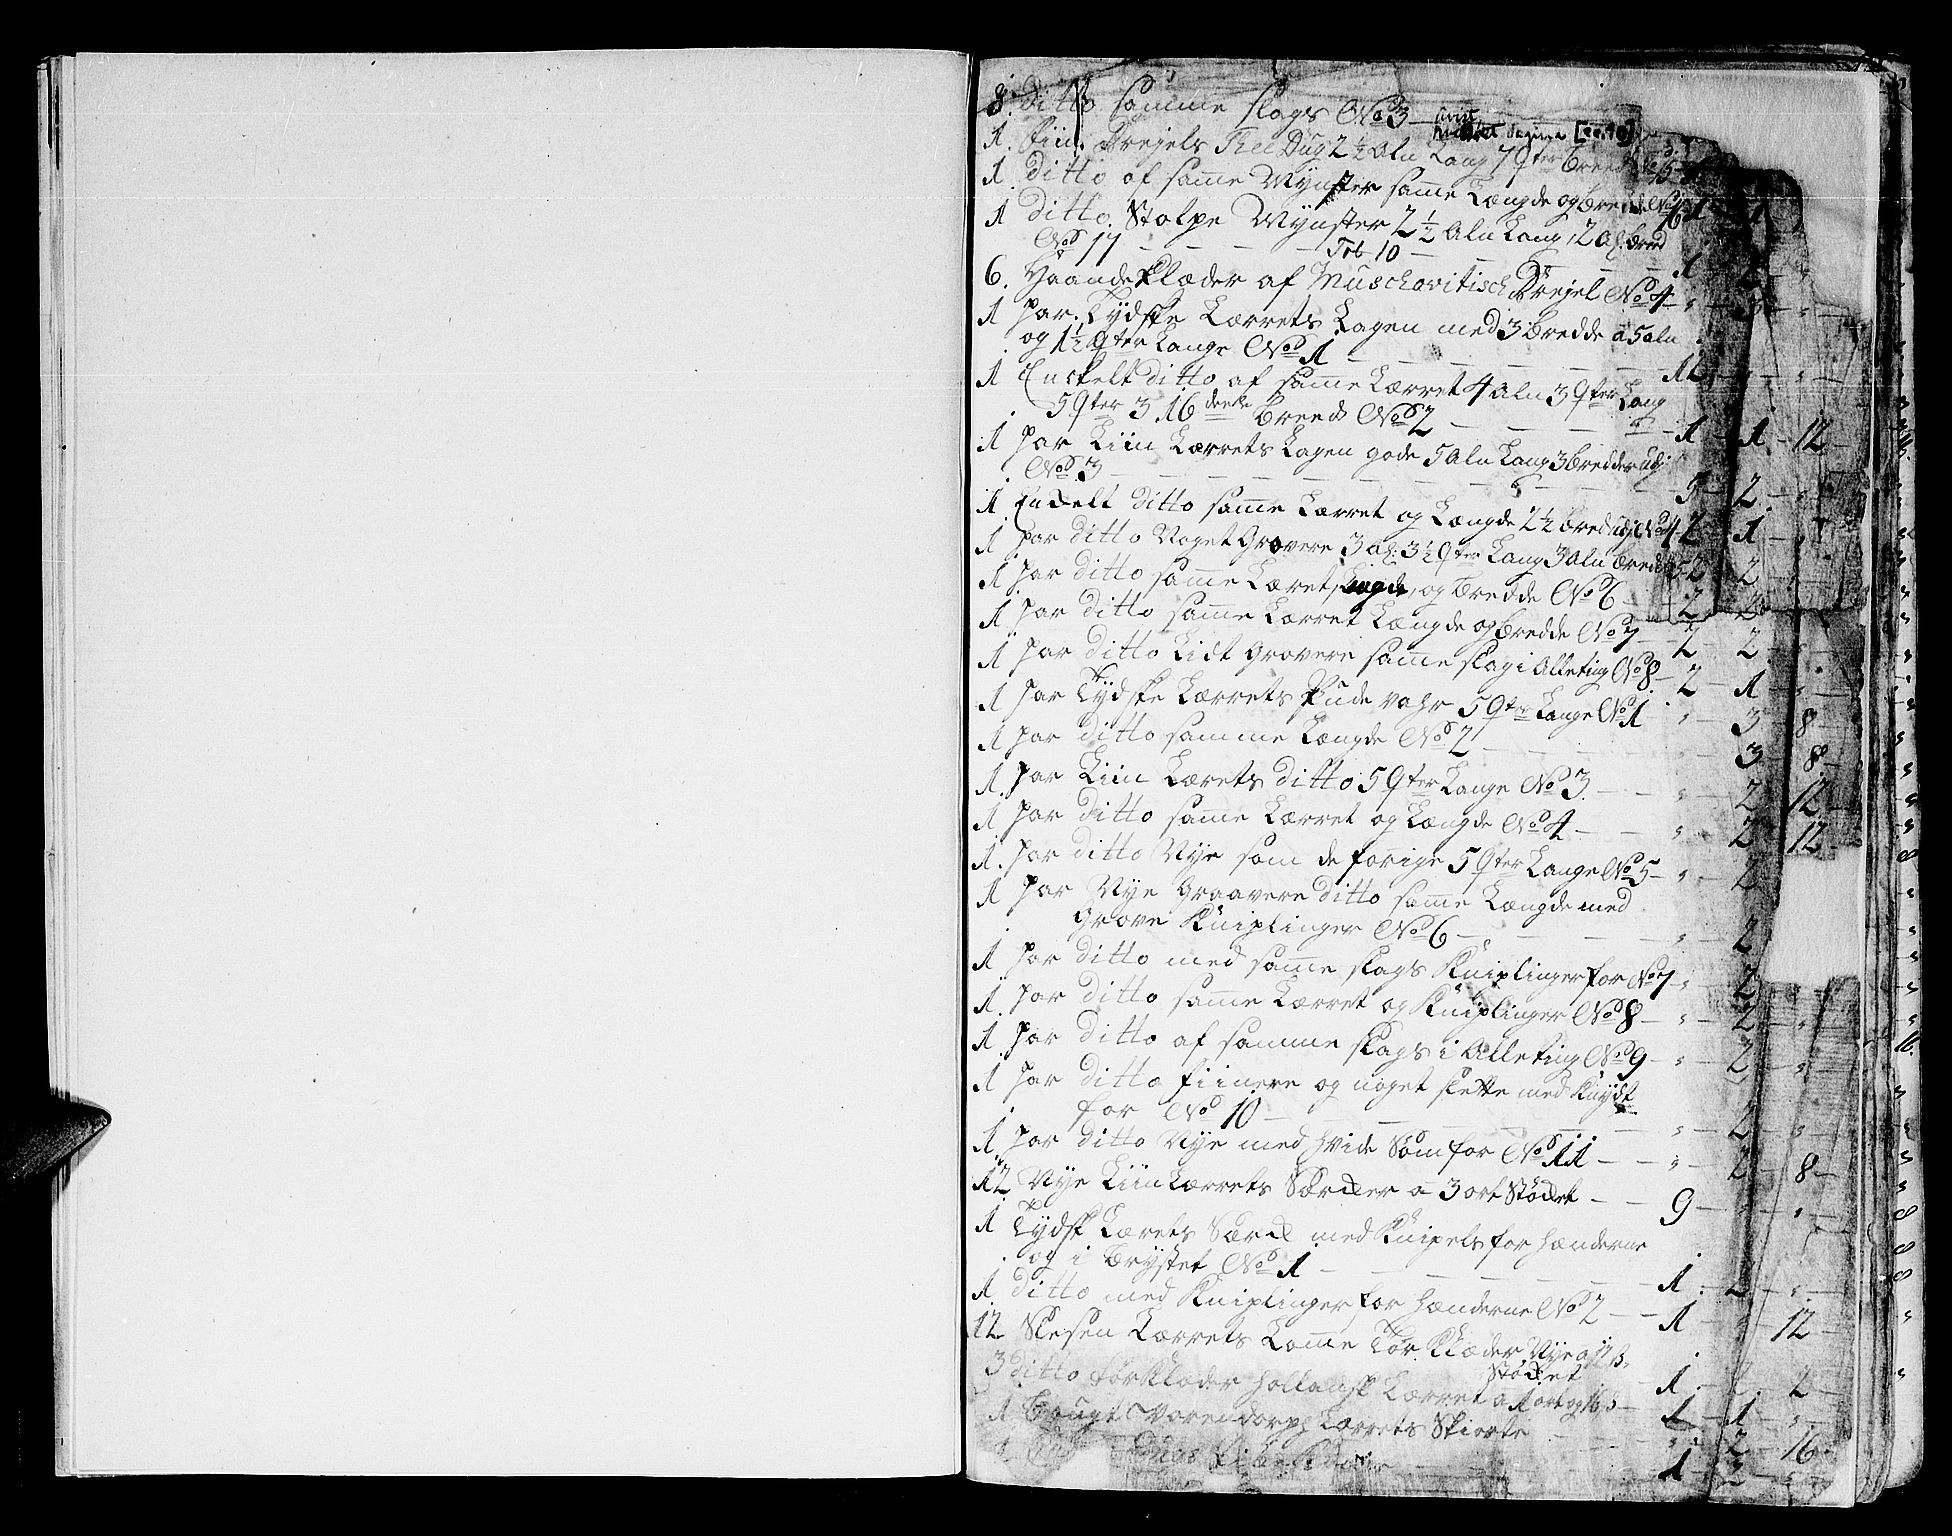 8. Ditto samme slags No 3 —
1. Fiin Drejels Thee Dug 2½ Aln Lang 7 Qter breed
1 ditto af samme Mynster samme Længde og bredde No 16 1
1 ditto Stolpe Mynster 2½ Aln Lang, 2 al. breed
No 17 — — — — — 1
6. Haandeklæder af Muschovitisch Drejel No 4 — " — 3 — " —
1 par Tydske Lærrets Lagen med 3 bredde a 5 aln
og 1½ Qter Lange No 1 — — — —
1 Enckelt ditto af samme Lærret 4 aln 3 Qter Lang
5 Qter 3 16 deele breed No 2 — — — 1 — 1 — 12 —
1 par Liin Lærrets Lagen gode 5 Aln Lang 3 bredder udj
No 3 — — — — — 3 — 2 —
1 Enckelt ditto samme Lærret og Længde 2½ bred udj No 4 2 — 1 —
1 par ditto Noget Grovere 3 al: 3½ Qter Lang 3 Aln breed 2 — 2
1 par ditto samme Læret, Længde, og bredde No 6 — 2
1 par ditto samme Lærret Længde og bredde No 7 — 2 — 2
1 par ditto Lidt Grovere samme slag i Alleting No 8 — 2 — 1 — " —
1 par Tydske Lærrets Pude vahr 5 Qter Lange No 1 " — 3 — 8 —
1 par ditto samme Længde No 2 — — — " 3 8 —
1 par Liin Lærets ditto 5 Qter Lange No 3 — — " — 2 — 12 —
1 par ditto samme Lærret og Længde No 4 — — " 2 — 12 —
1. par ditto Nye som de forige 5 Qter Lange No 5 — " — 2
1 par Nye Graavere ditto samme Længde med
Grove Kniplinger No 6 — — — — " — 2
1 par ditto med samme slags Kniplinger for No 7 " — 2
1 par ditto samme Lærret og Kniplinger No 8 — " — 2 — "
1 par ditto af samme slags i Alleting No 9 — " — 2 — "
1 par ditto fiinere og noget slette med Knydt
for No 10 — — — — " — 2 — " —
1 par ditto Nye med hvide Søm for No 11 — — " — 2 — 8 —
12 Nye Liin Lærrets Særcker a 3 ort Støcket — — 9 — " —
1 Tydsk Lærets Særck med Knipels for hænderne
og i Brystet No 1 — — — — 1 — 2 — " —
1 ditto med Kniplinger for hænderne No 2 — — 1 12 —
12 Slesen Lærrets Lomme Tørklæder Nye a 17 β.
Støcket — 1 — 2 — 2
3 ditto førklæder hollansk Lærret a 1 ort og 16 β — 1 — 1 — " —
1 Brugt Varendorph Lærrets Skiorte — — " 2 — 16 —